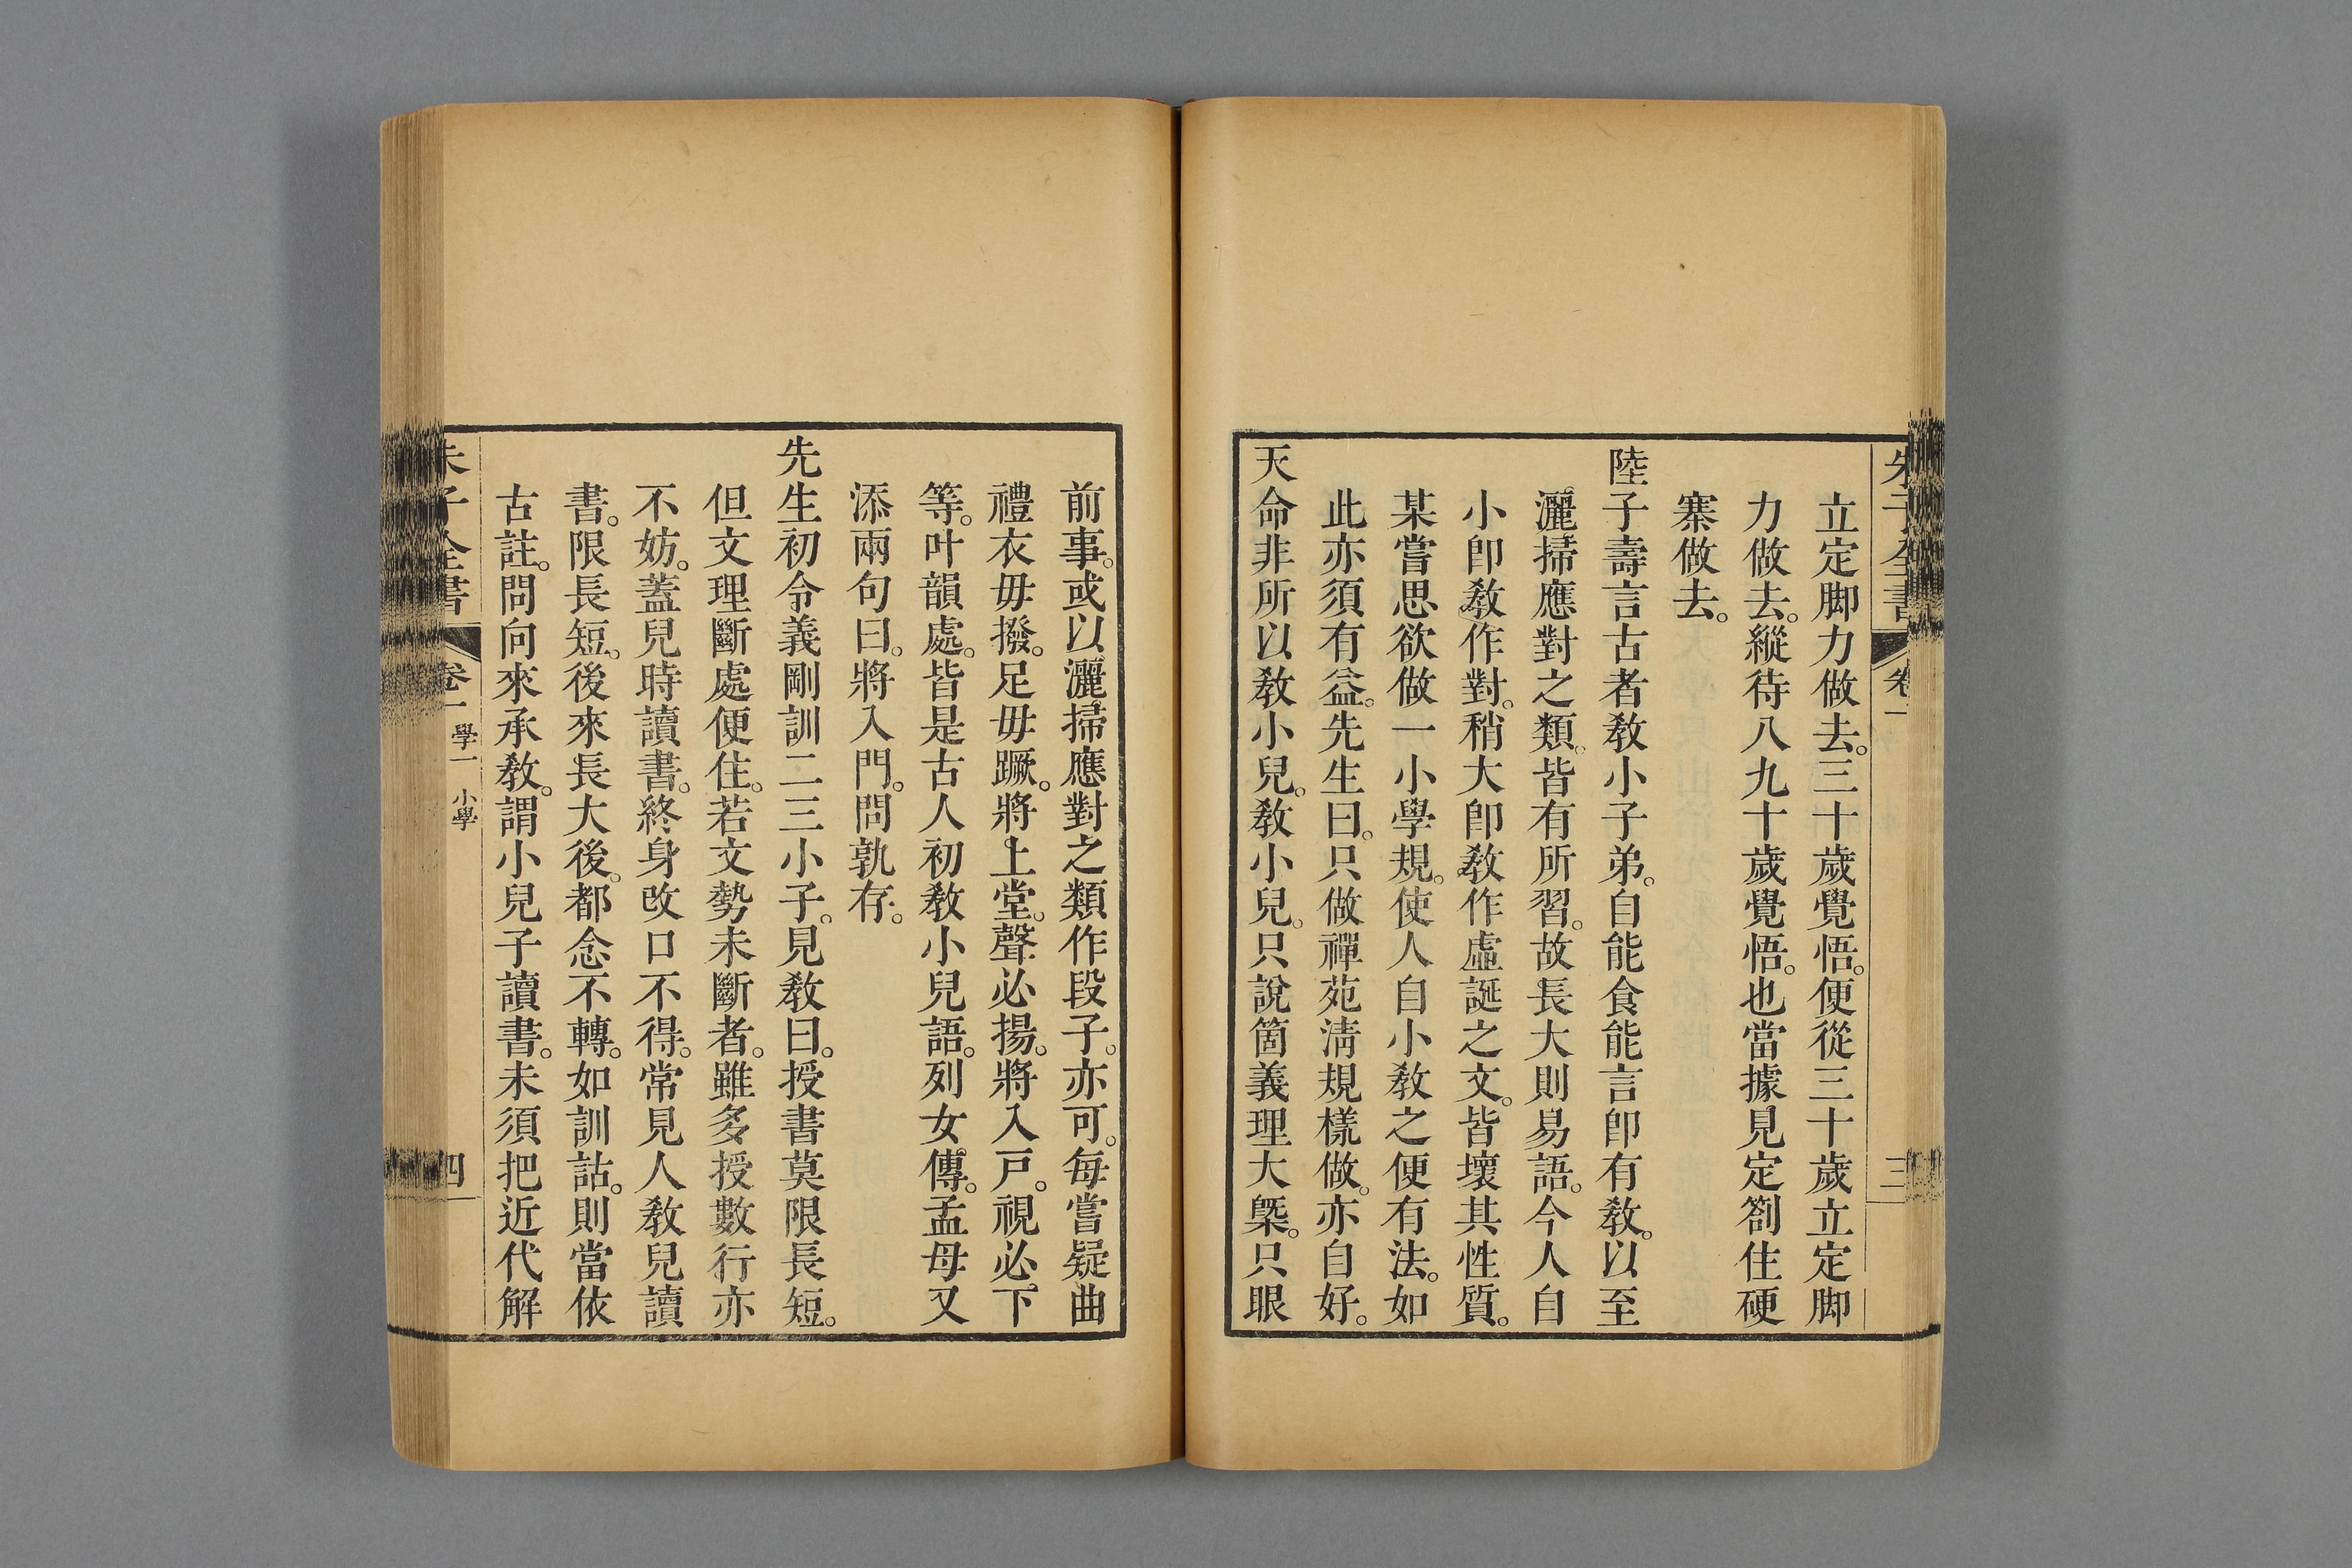 朱子全書 卷一 三
立定脚力做去。三十歲覺悟。便從三十歲立定脚
力做去。縱待八九十歲覺悟。也當據見定劄住硬
寨做去。
陸子壽言古者敎小子弟。自能食能言卽有敎。以至
灑掃應對之類。皆有所習。故長大則易語。今人自
小卽敎作對。稍大卽敎作虛誕之文。皆壞其性質。
某嘗思欲做一小學規。使人自小敎之便有法。如
此亦須有益。先生曰。只做禪苑淸規樣做。亦自好。
天命非所以敎小兒。敎小兒。只說箇義理大槩。只眼
前事。或以灑掃應對之類作段子。亦可。每嘗疑曲
禮衣毋撥。足毋蹶。將上堂。聲必揚。將入戸。視必下
等。叶韻處。皆是古人初敎小兒語。列女傳。孟母又
添兩句曰。將入門。問孰存。
先生初令義剛訓二三小子。見敎曰。授書莫限長短。
但文理斷處便住。若文勢未斷者。雖多授數行亦
不妨。蓋兒時讀書。終身改口不得。常見人敎兒讀
書。限長短。後來長大後。都念不轉。如訓詁。則當依
古註。問向來承敎。謂小兒子讀書。未須把近代解
朱子全書 卷一 學一 小學 四